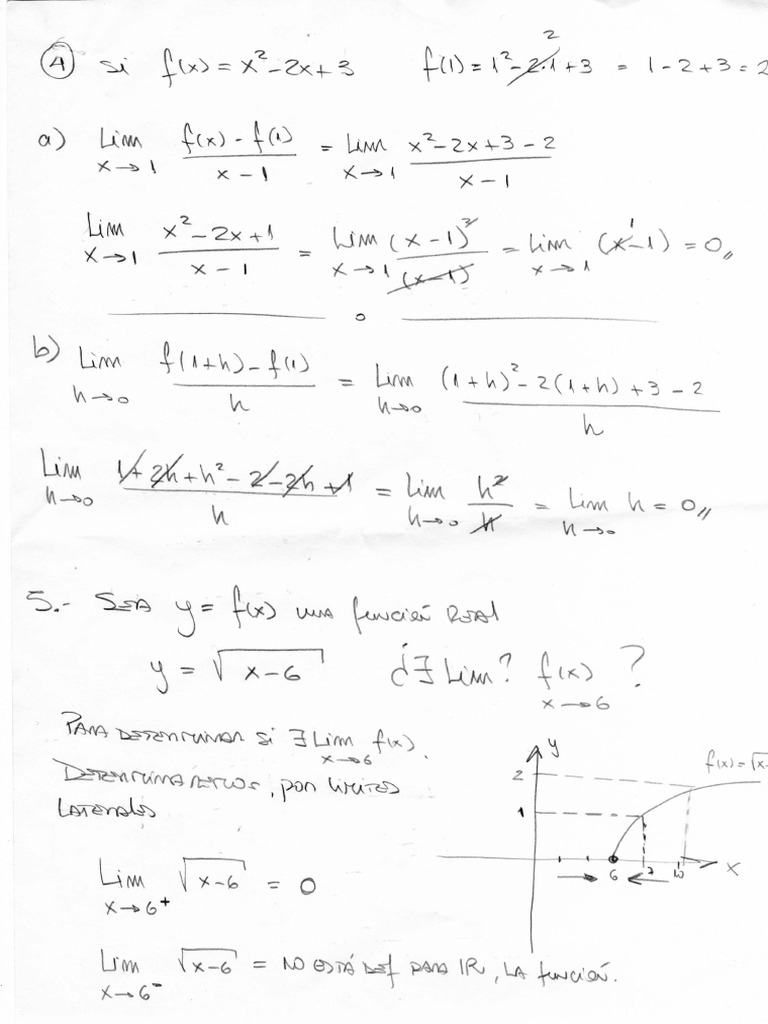 4) si f(x) = x² - 2x + 3 f(1) = 1² - 2·1 + 3 = 1 - 2 + 3 = 2
2
a) Lim x→1 (f(x) - f(1))/(x - 1) = Lim x→1 (x² - 2x + 3 - 2)/(x - 1)
Lim x→1 (x² - 2x + 1)/(x - 1) = Lim x→1 (x - 1)²/(x - 1) = Lim x→1 (x - 1) = 0,,
b) Lim h→0 (f(1+h) - f(1))/h = Lim h→0 ((1+h)² - 2(1+h) + 3 - 2)/h
Lim h→0 (1 + 2h + h² - 2 - 2h + 1)/h = Lim h→0 h²/h = Lim h→0 h = 0,,
5.- SEA y = f(x) una función REAL
y = √(x-6) ¿∃ Lim? f(x) x→6 ?
PARA DETERMINAR si ∃ Lim x→6 f(x).
DETERMINAREMOS, por LIMITES
LATERALES
Lim x→6⁺ √(x-6) = 0
Lim x→6⁻ √(x-6) = NO ESTÁ DEF PARA IR, LA función.
y
f(x)=√x-
2
1
6 7 10 x